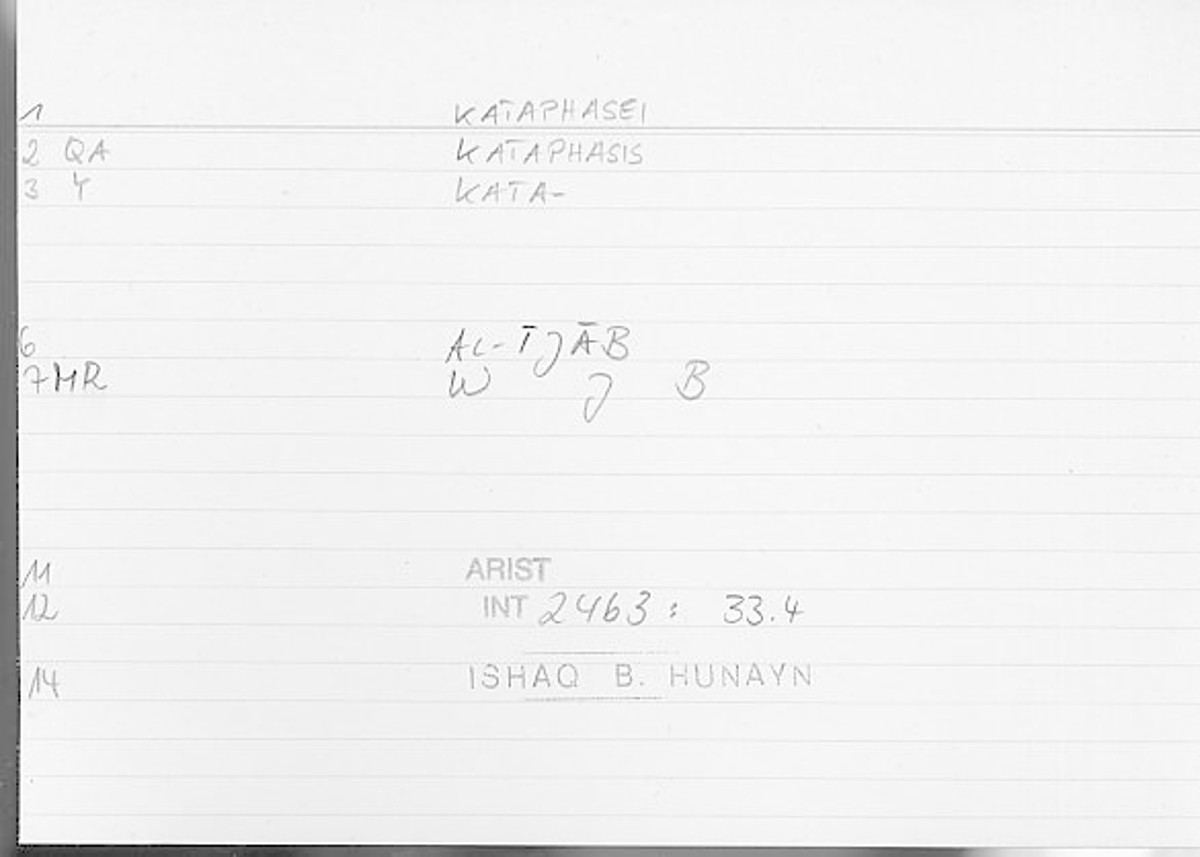 1 KATAPHASEI
2 QA KATAPHASIS
3 Y KATA-
6 AL-ĪJĀB
7 MR W J B
11 ARIST
12 INT 2463: 33.4
14 ISHAQ B. HUNAYN